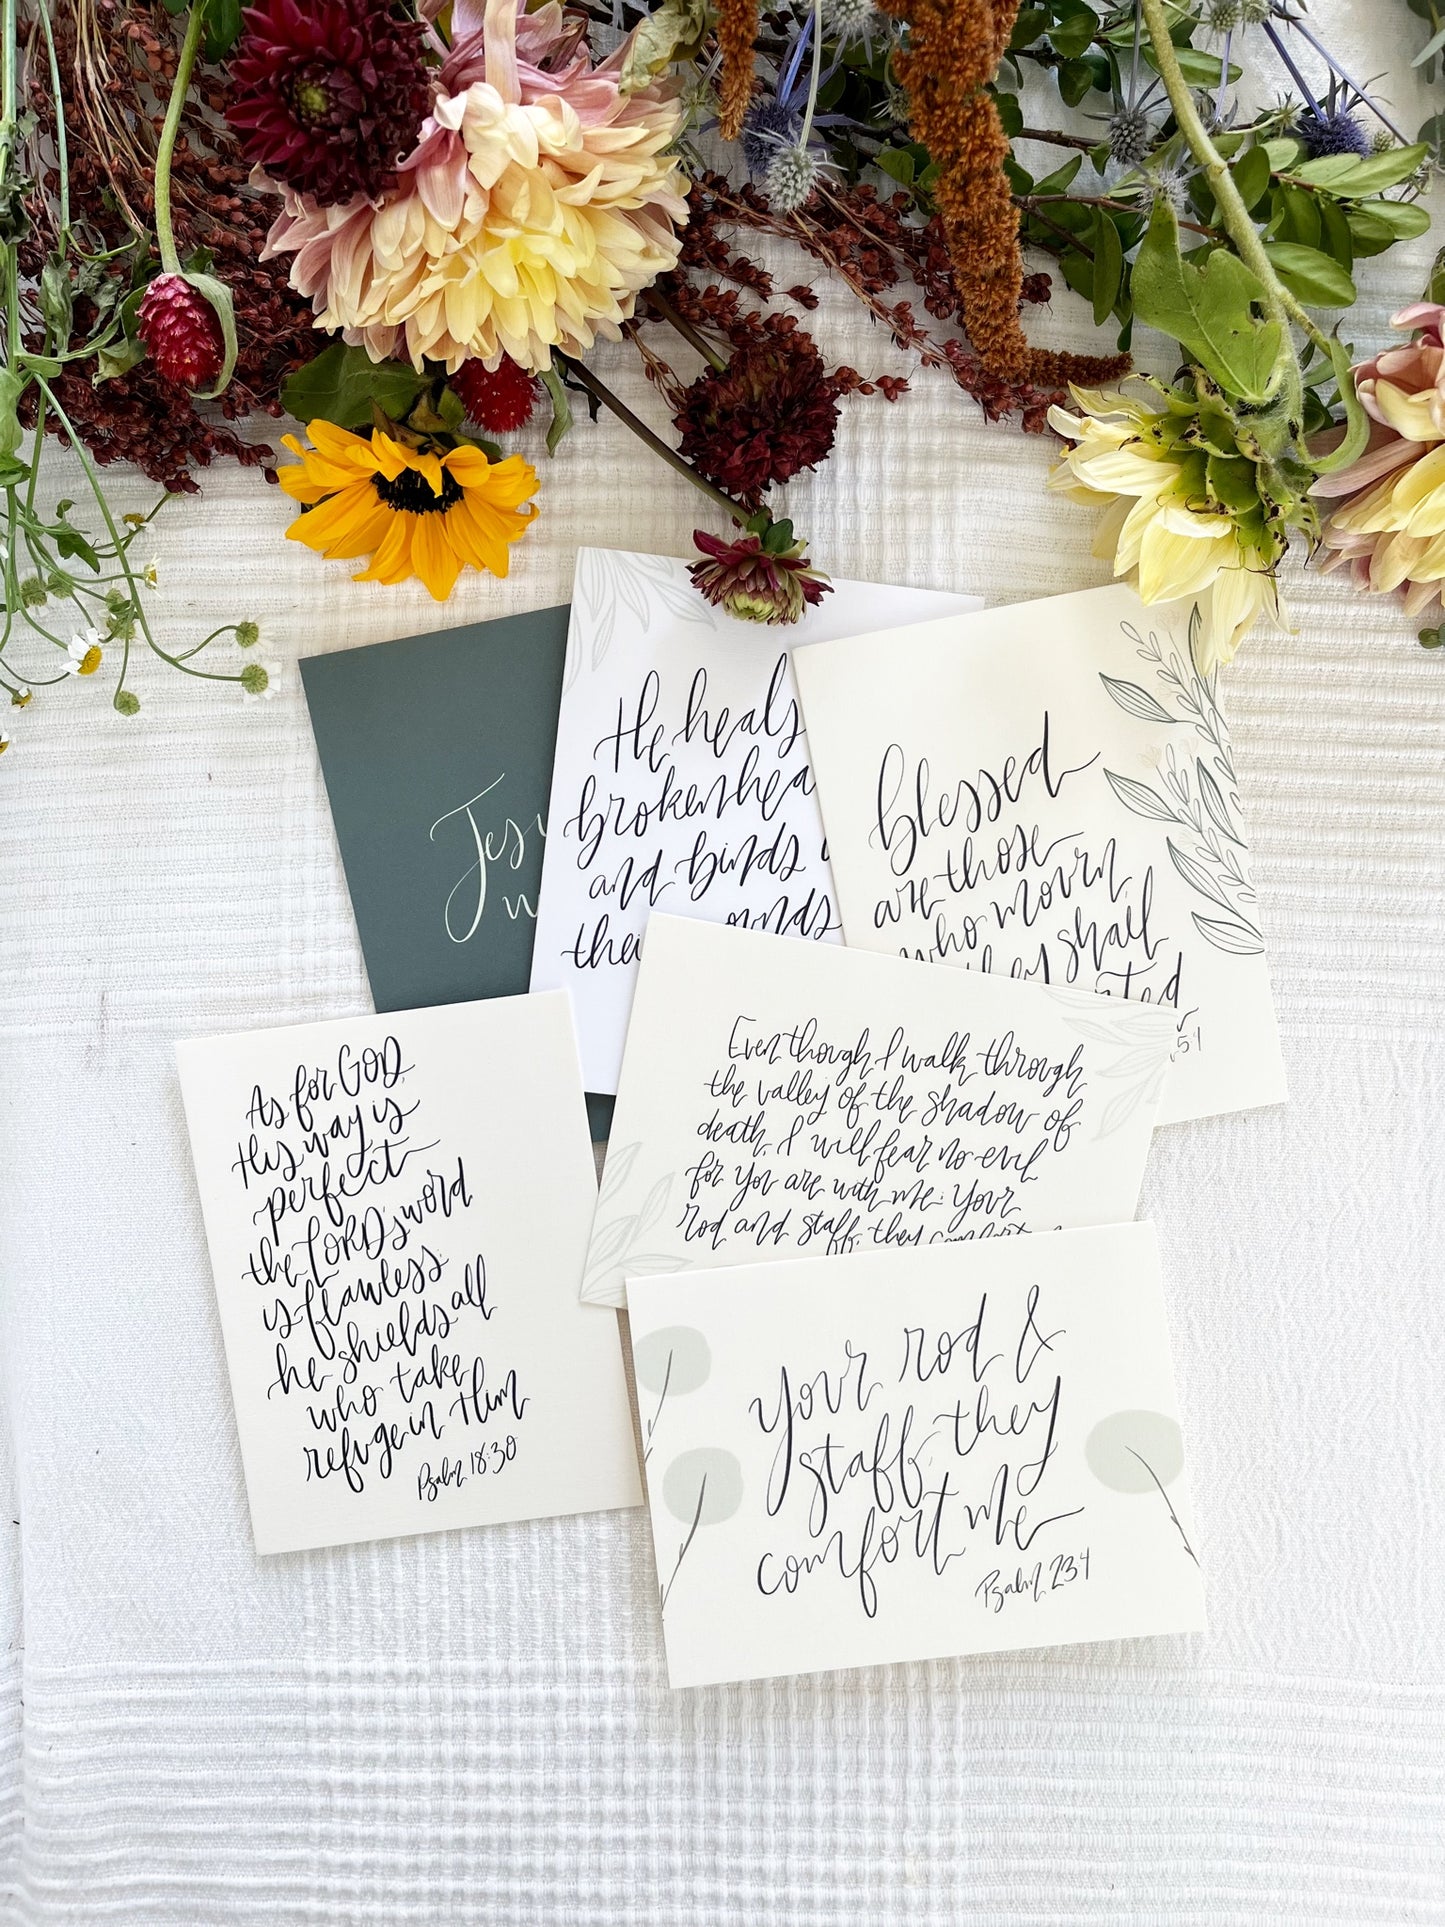 He heals
and binds
blessed
are those
who mourn
they shall
As for GOD,
His way is
perfect
the LORD's word
is flawless;
he shields all
who take
refuge in Him
Psalm 18:30
Even though I walk through
the valley of the shadow of
death, I will fear no evil
for you are with me; your
rod and staff, they comfort
your rod &
staff, they
comfort me
Psalm 23:4